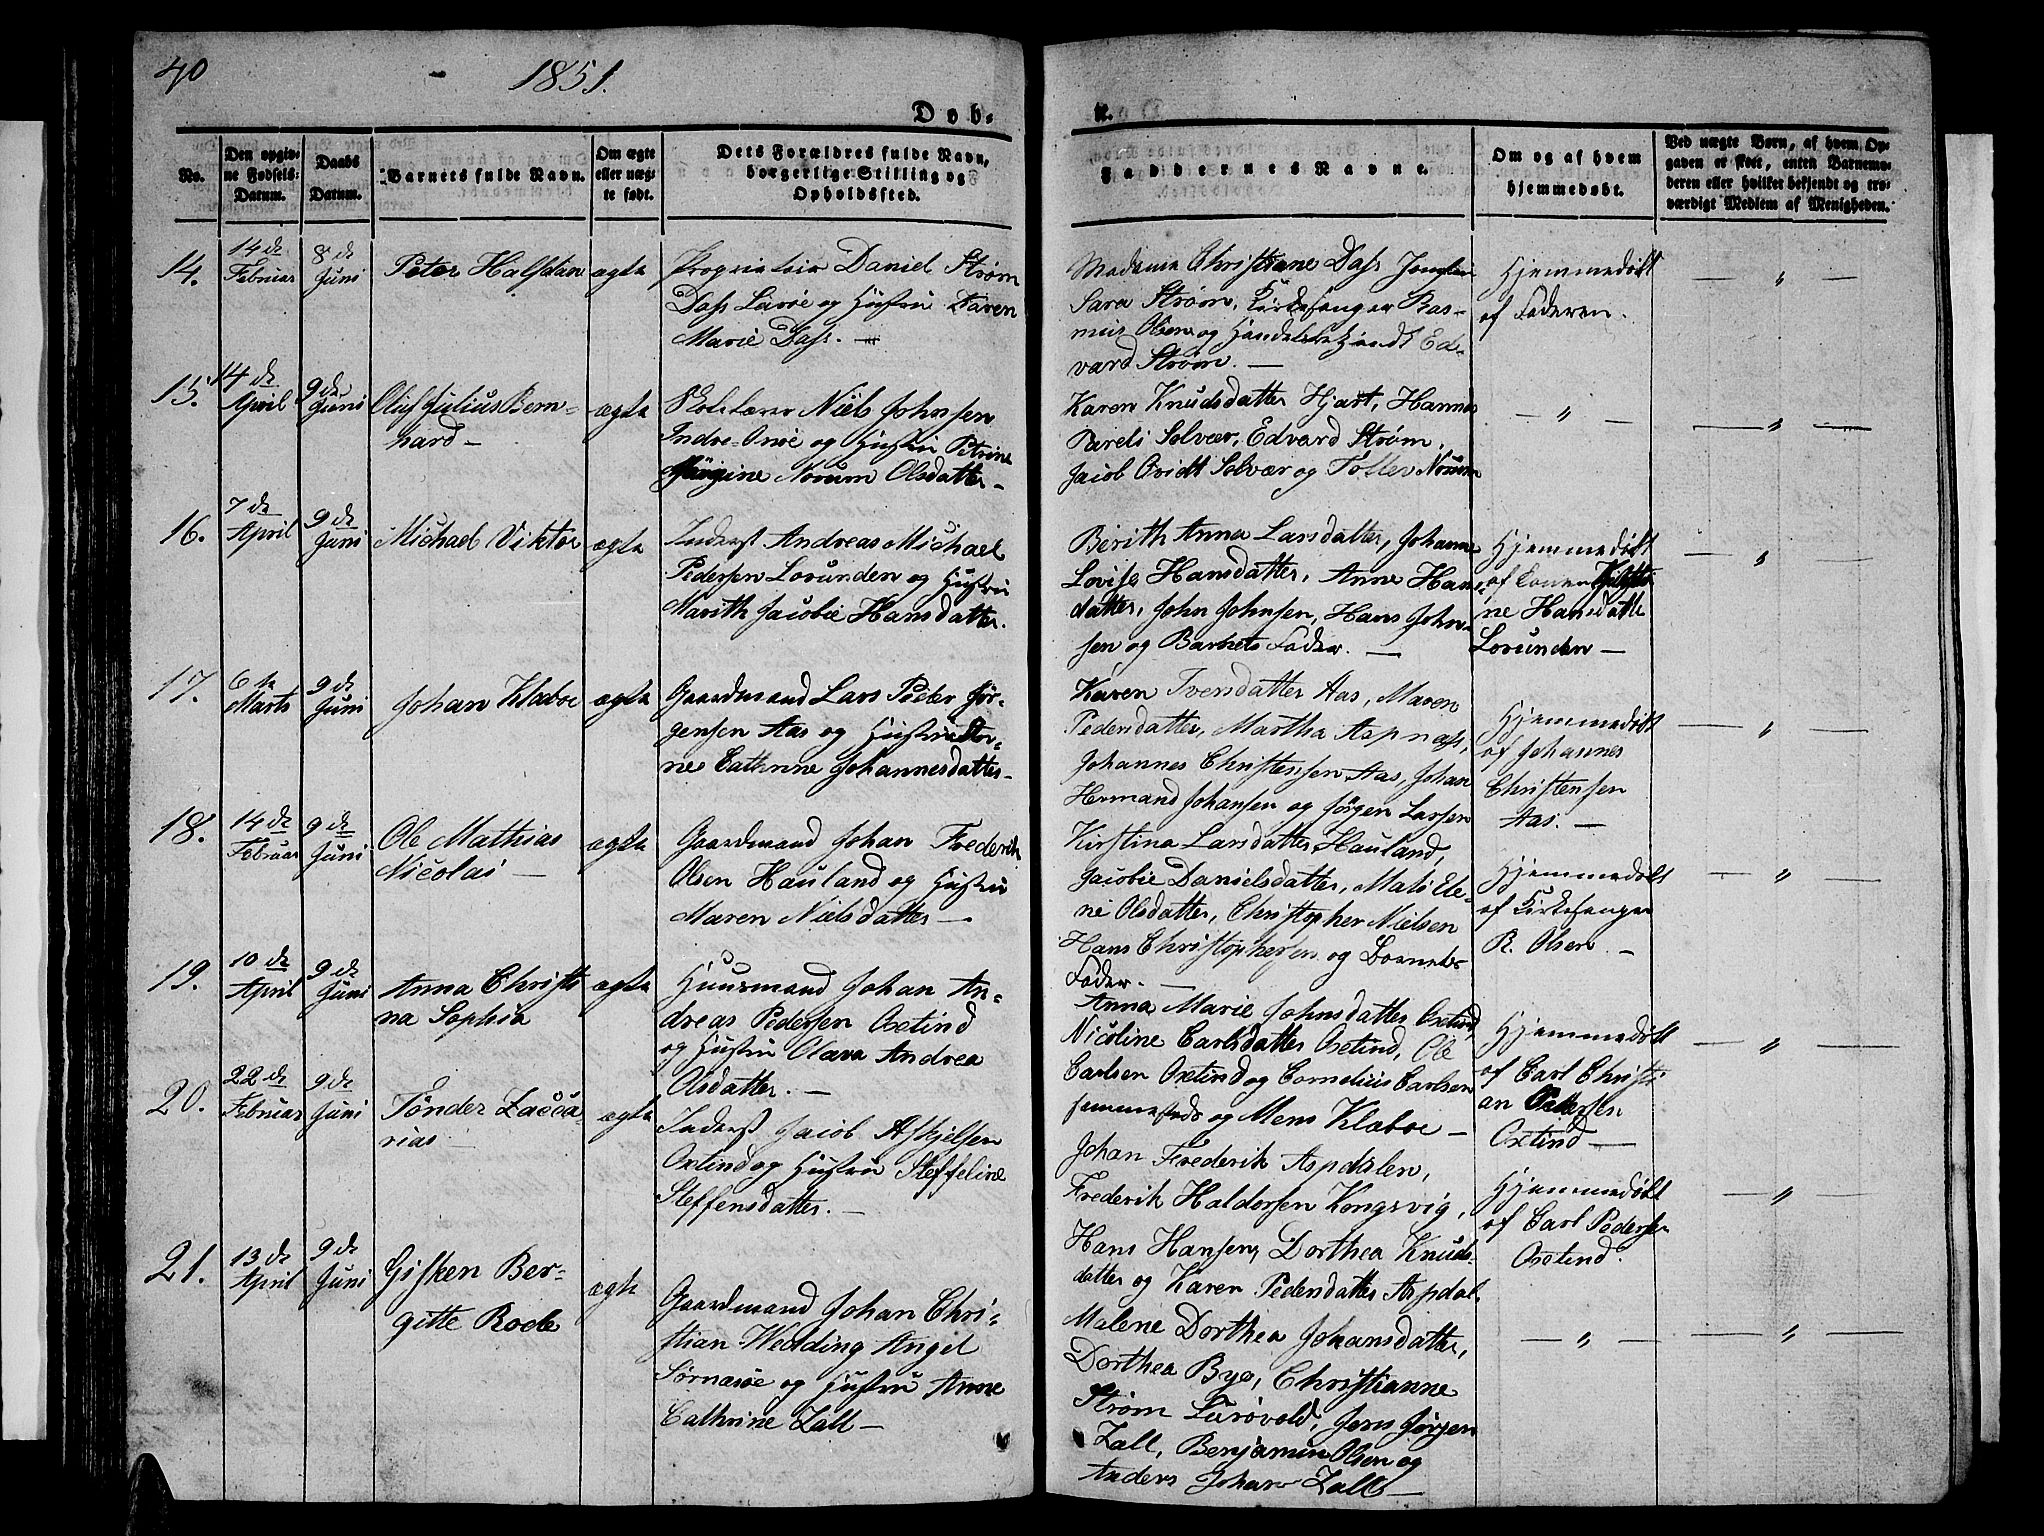 40
1851.
Døb-
te.
No.
Den opgiv-
ne Fødsels-
Datum.
Daabs
Datum.
Barnets fulde Navn.
Om ægte
eller uæg-
te født.
Dets Forældres fulde Navn,
borgerlige Stilling og
Opholdssted.
Faddernes Navne.
Om og af hvem
hjemmedøbt.
Ved uægte Børn, af hvem Op-
gaven er skeet, enten Barnemo-
deren eller hvilket bekjendt og tro-
værdigt Medlem af Menigheden.
14.
14de
Februar
8de
Juni
Peter Halfdan
ægte
Proprietair Daniel Strøm
Dass Lurøe og Hustru Maren
Marie Dass. —
Madame Christiane Dass, Jomfru
Sara Strøm, Kirkesanger Ras-
mus Olsen og Handelsbetjendt Ed-
vard Strøm. —
Hjemmedøbt
af Faderen.
— " —
15.
14de
April
9de
Juni
Oluf Julius Bern-
hard —
ægte
Skolelærer Niels Johnsen
Indre-Onøe og Hustru Petrine
Jørgine Norum Olsdatter —
Karen Knudsdatter Hjart, Hannes
Pareli Solvær, Edvard Strøm,
Jacob Qvidt Solvær og Toller Norum
— "
— " —
16.
7de
April
9de
Juni
Michael Viktor
ægte
Inderst Andreas Michael
Pedersen Lovunden og Hustru
Marith Jacobie Hansdatter.
Berith Anna Larsdatter, Johanne
Lovise Hansdatter, Anne Hans-
datter, John Johnsen, Hans John-
sen og Barnets Fader. —
Hjemmedøbt
af Konen
ne Hansdatter
Lovunden —
— " —
17.
6te
Marts
9de
Juni
Johan Klæboe
ægte
Gaardmand Lars Peder Jør-
gensen Aas og Hustru
ne Cathrine Johannesdatter —
Karen Ivensdatter Aas, Maren
Pedersdatter, Martha Aspnæss,
Johannes Christensen Aas, Johan
Hermand Johansen og Jørgen Larsen
Hjemmedøbt
af Johannes
Christensen
Aas. —
— " —
18.
14de
Februar
9de
Juni
Ole Mathias
Nicolai —
ægte
Gaardmand Johan Frederik
Olsen Hauland og Hustru
Maren Nielsdatter —
Kirstina Larsdatter Hauland,
Jacobie Danielsdatter, Mali Ele-
ne Olsdatter, Christopher Nielsen
Hans Christophersen og Barnets
Fader. —
Hjemmedøbt
af Kirkesanger
R. Olsen. —
— " —
19.
10de
April
9de
Juni
Anna Christi-
na Sophia
ægte
Huusmand Johan An-
dreas Pedersen Oxtind
og Hustru Olava Andrea
Olsdatter. —
Anna Marie Johnsdatter Oxtind,
Nicoline Carlsdatter Oxtind, Ole
Carlsen Oxtind og Cornelius Carlsen
sammesteds og Mens Klæboe —
Hjemmedøbt
af Carl Christi
an Pedersen
Oxtind —
— " —
20.
22de
Februar
9de
Juni
Tønder Zacca-
rias
ægte
Inderst Jacob Afkjelsen
Oxtind og Hustru Steffeline
Steffensdatter. —
Johan Frederik Aspdalen,
Frederik Haldorsen Kongsvig,
Hans Hansen, Dorthea Knuds-
datter og Karen Pedersdatter Aspdal.
Hjemmedøbt
af Carl Pedersen
Oxtind.
— " —
21.
13de
April
9de
Juni
Gisken Ber-
gitte Rode
ægte
Gaardmand Johan Chri-
stian Wedding Angel
Sørnæsøe og Hustru Anne
Cathrine Zall —
Malene Dorthea Johansdatter,
Dorthea Bye, Christianne
Strøm Lurøvold, Jens Jørgen
Zall, Benjamin Olsen og
Anders Johan Zall —
— " —
— " —